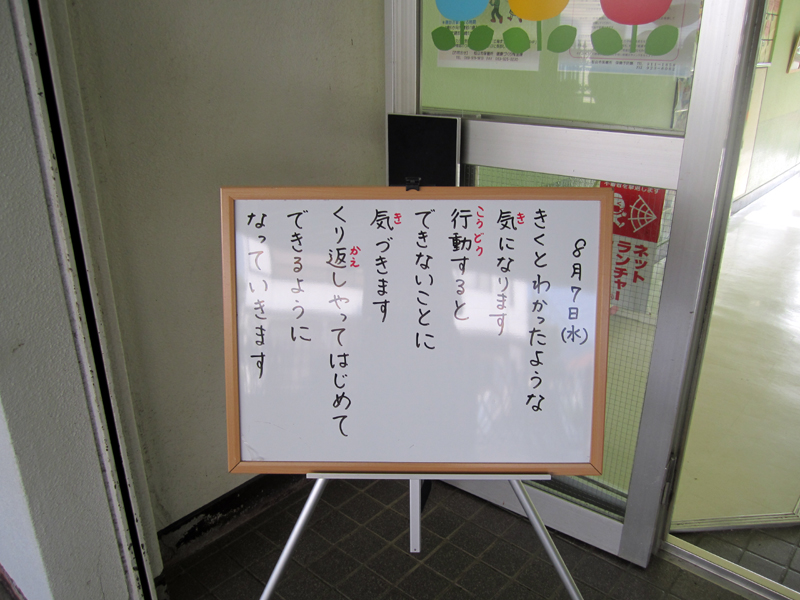 8月7日(水)
きくとわかったような
気になります
行動すると
できないことに
気づきます
くり返しやってはじめて
できるように
なっていきます
き
こうどう
き
かえ
ネット
ランチャー